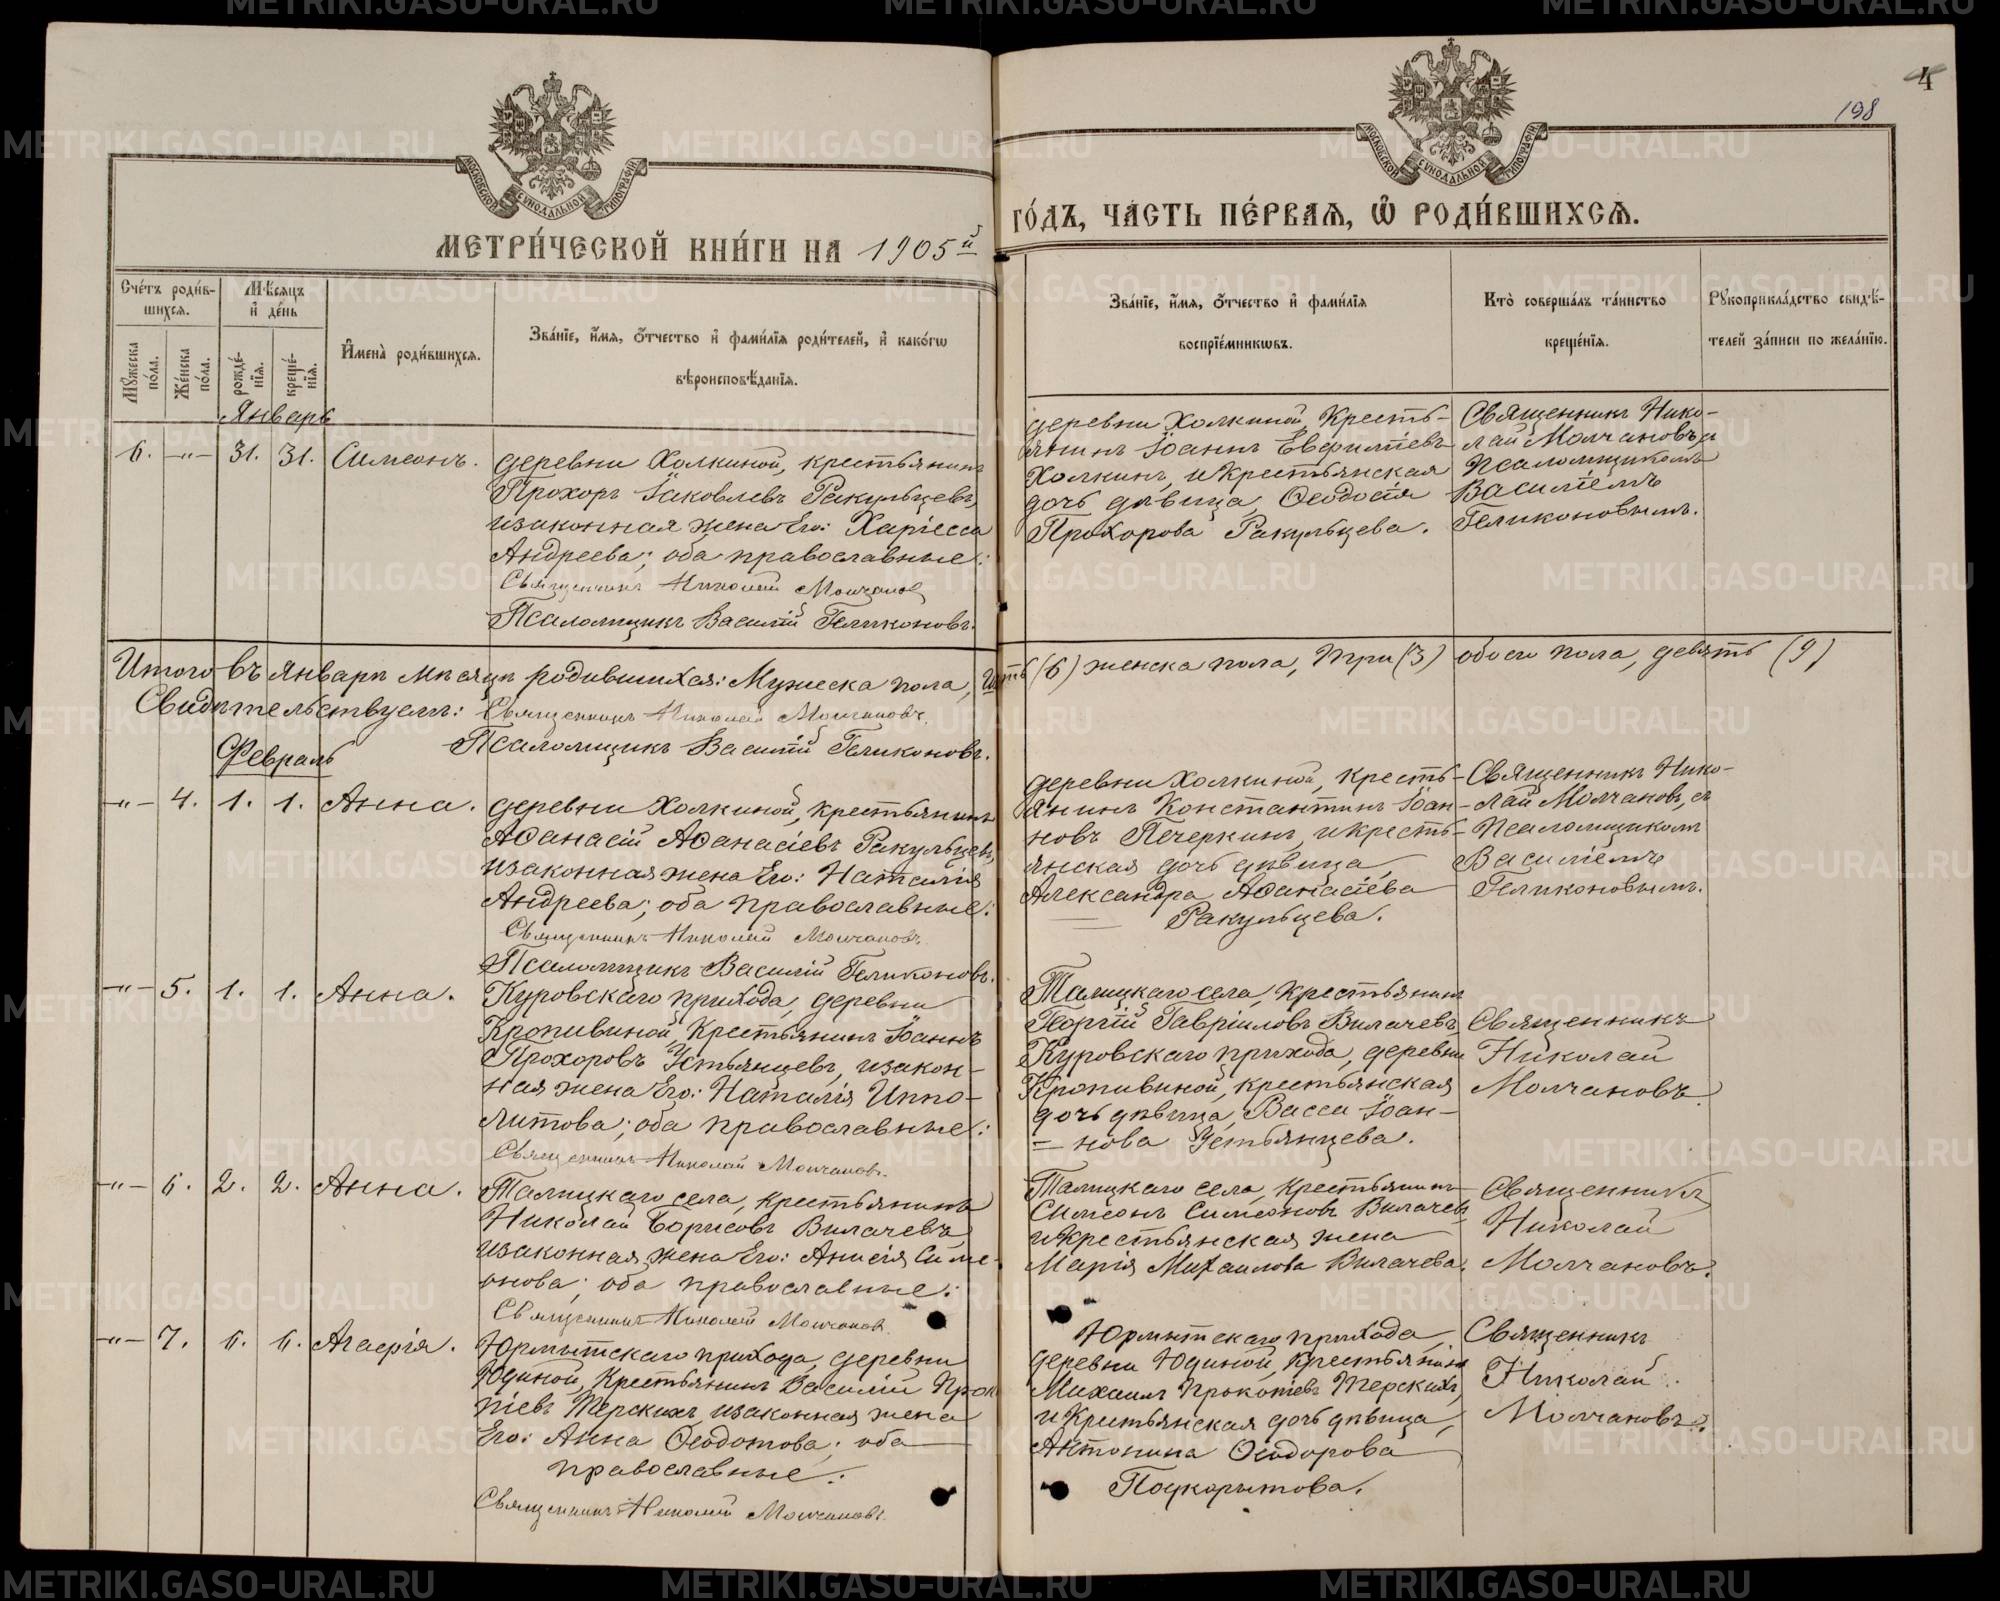 198
4
МОСКОВСКОЙ СѴНОДАЛЬНОЙ ТИПОГРАФІИ
МОСКОВСКОЙ СѴНОДАЛЬНОЙ ТИПОГРАФІИ
МЕТРИ́ЧЕСКОЙ КНИ́ГИ НА 1905й
ГО́ДЪ, ЧА́СТЬ ПЕ́РВАѦ, Ѽ РОДИ́ВШИХСѦ.
Сче́тъ роди́в-
шихсѧ.
Мꙋжеска по́ла.
Же́нска по́ла.
Мѣ́сѧцъ
и҆ де́нь
рожде́-
нїѧ.
креще́-
нїѧ.
И҆мена̀ роди́вшихсѧ.
Зва́нїе, и҆́мѧ, ѻ҆́тчество и҆ фами́лїѧ роди́телей, и҆ како́гѡ
вѣроисповѣ́данїѧ.
Зва́нїе, и҆́мѧ, ѻ҆́тчество и҆ фами́лїѧ
воспрїе́мникѡвъ.
Кто̀ соверша́лъ та́инство
креще́нїѧ.
Рꙋкоприкла́дство свидѣ́-
телей за́писи по жела́нїю.
Январь
6. -„- 31. 31. Симеонъ.
деревни Холкиной, крестьянинъ
Прохоръ Іаковлевъ Ракульцевъ,
и законная жена Его: Харіесса
Андреева; оба православные:
Священникъ Николай Молчановъ
Псаломщикъ Василій Геликоновъ.
деревни Холкиной, Кресть-
янинъ Іоаннъ Евфиміевъ
Холкинъ, и Крестьянская
дочь дѣвица, Ѳеодосія
Прохорова Ракульцева.
Священникъ Нико-
лай Молчановъ и
Псаломщикомъ
Василіемъ
Геликоновымъ.
Итого въ Январѣ мѣсяцѣ родившихся: Мужеска пола, шесть (6) женска пола, три (3) обоего пола, девять (9)
Свидѣтельствуемъ: Священникъ Николай Молчановъ.
Псаломщикъ Василій Геликоновъ.
Февраль
-„- 4. 1. 1. Анна.
деревни Холкиной, крестьянинъ
Аѳанасій Аѳанасіевъ Ракульцевъ,
и законная жена Его: Наталія
Андреева; оба православные:
Священникъ Николай Молчановъ.
Псаломщикъ Василій Геликоновъ.
деревни Холкиной, кресть-
янинъ Константинъ Іоан-
новъ Печеркинъ, и кресть-
янская дочь дѣвица,
Александра Аѳанасіева
Ракульцева.
Священникъ Нико-
лай Молчановъ, съ
Псаломщикомъ
Василіемъ
Геликоновымъ.
-„- 5. 1. 1. Анна.
Куровскаго прихода, деревни
Кропивиной Крестьянинъ Іоаннъ
Прохоровъ Устьянцевъ, и закон-
ная жена Его: Наталія Иппо-
литова; оба православные:
Священникъ Николай Молчановъ.
Талицкаго села, крестьянинъ
Георгій Гавріиловъ Вилачевъ,
Куровскаго прихода, деревни
Кропивиной, крестьянская
дочь дѣвица, Васса Іоан-
= нова Устьянцева.
Священникъ
Николай
Молчановъ.
-„- 6. 2. 2. Анна.
Талицкаго села, крестьянинъ
Николай Борисовъ Вилачевъ
и законная жена Его: Анисія Симе-
онова; оба православные:
Священникъ Николай Молчановъ.
Талицкаго села, крестьянинъ
Симеонъ Симеоновъ Вилачевъ
и Крестьянская жена
Марія Михаилова Вилачева.
Священникъ
Николай
Молчановъ.
-„- 7. 6. 6. Агафія.
Юрмытскаго прихода, деревни
Юдиной, Крестьянинъ Василій Прок
піевъ Терскихъ, и законная жена
Его: Анна Ѳеодотова; оба
православные:
Священникъ Николай Молчановъ.
Юрмытскаго прихода,
деревни Юдиной, Крестьянинъ
Михаилъ Прокопіевъ Терскихъ,
и Крестьянская дочь дѣвица,
Антонина Ѳеодорова
Подкорытова.
Священникъ
Николай
Молчановъ.
METRIKI.GASO-URAL.RU